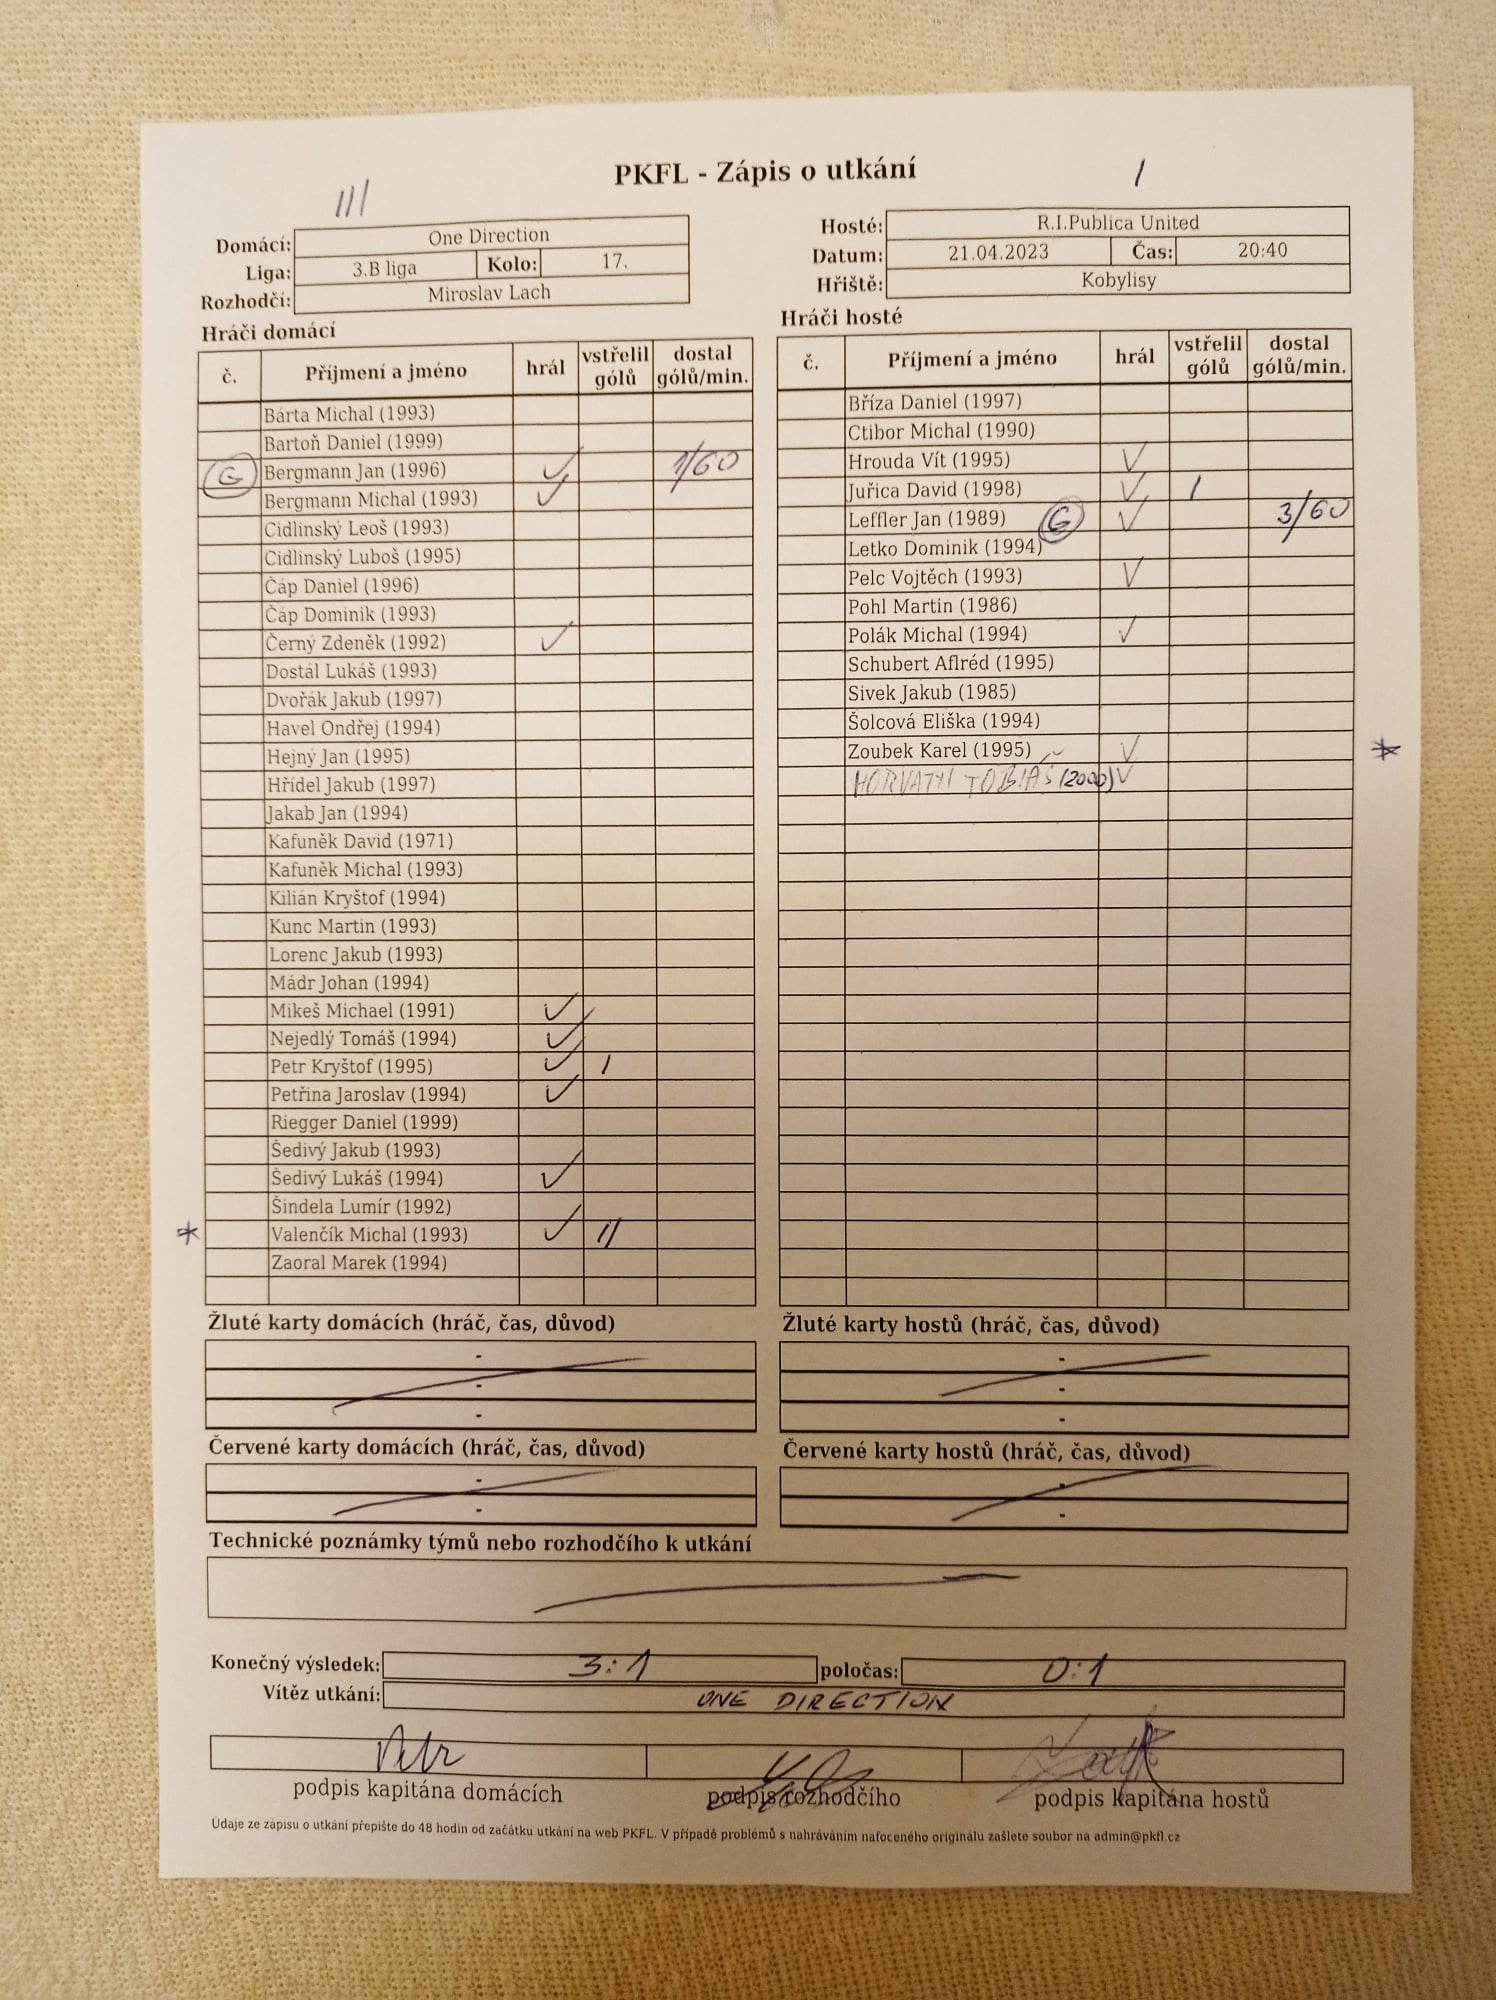 PKFL - Zápis o utkání
III
I
Domácí: One Direction
Liga: 3.B liga Kolo: 17.
Rozhodčí: Miroslav Lach
Hosté: R.I.Publica United
Datum: 21.04.2023 Čas: 20:40
Hřiště: Kobylisy
Hráči domácí
č. Příjmení a jméno hrál vstřelil gólů dostal gólů/min.
Bárta Michal (1993)
Bartoň Daniel (1999)
G Bergmann Jan (1996) ✓ 1/60
Bergmann Michal (1993) ✓
Cidlinský Leoš (1993)
Cidlinský Luboš (1995)
Čáp Daniel (1996)
Čáp Dominik (1993)
Černý Zdeněk (1992) ✓
Dostál Lukáš (1993)
Dvořák Jakub (1997)
Havel Ondřej (1994)
Hejný Jan (1995)
Hřídel Jakub (1997)
Jakab Jan (1994)
Kafuněk David (1971)
Kafuněk Michal (1993)
Kilián Kryštof (1994)
Kunc Martin (1993)
Lorenc Jakub (1993)
Mádr Johan (1994)
Mikeš Michael (1991) ✓
Nejedlý Tomáš (1994) ✓
Petr Kryštof (1995) ✓ I
Petřina Jaroslav (1994) ✓
Riegger Daniel (1999)
Šedivý Jakub (1993)
Šedivý Lukáš (1994) ✓
Šindela Lumír (1992)
* Valenčík Michal (1993) ✓ II
Zaoral Marek (1994)
Hráči hosté
č. Příjmení a jméno hrál vstřelil gólů dostal gólů/min.
Bříza Daniel (1997)
Ctibor Michal (1990)
Hrouda Vít (1995) ✓
Juřica David (1998) ✓ I
Leffler Jan (1989) G ✓ 3/60
Letko Dominik (1994)
Pelc Vojtěch (1993) ✓
Pohl Martin (1986)
Polák Michal (1994) ✓
Schubert Aflréd (1995)
Sivek Jakub (1985)
Šolcová Eliška (1994)
Zoubek Karel (1995) ✓ *
HORVATYI TOBIÁŠ (2000) ✓
Žluté karty domácích (hráč, čas, důvod)
-
-
-
Žluté karty hostů (hráč, čas, důvod)
-
-
-
Červené karty domácích (hráč, čas, důvod)
-
-
Červené karty hostů (hráč, čas, důvod)
-
-
Technické poznámky týmů nebo rozhodčího k utkání
Konečný výsledek: 3:1 poločas: 0:1
Vítěz utkání: ONE DIRECTION
Petr
podpis kapitána domácích podpis rozhodčího podpis kapitána hostů
Údaje ze zápisu o utkání přepište do 48 hodin od začátku utkání na web PKFL. V případě problémů s nahráváním nafoceného originálu zašlete soubor na admin@pkfl.cz